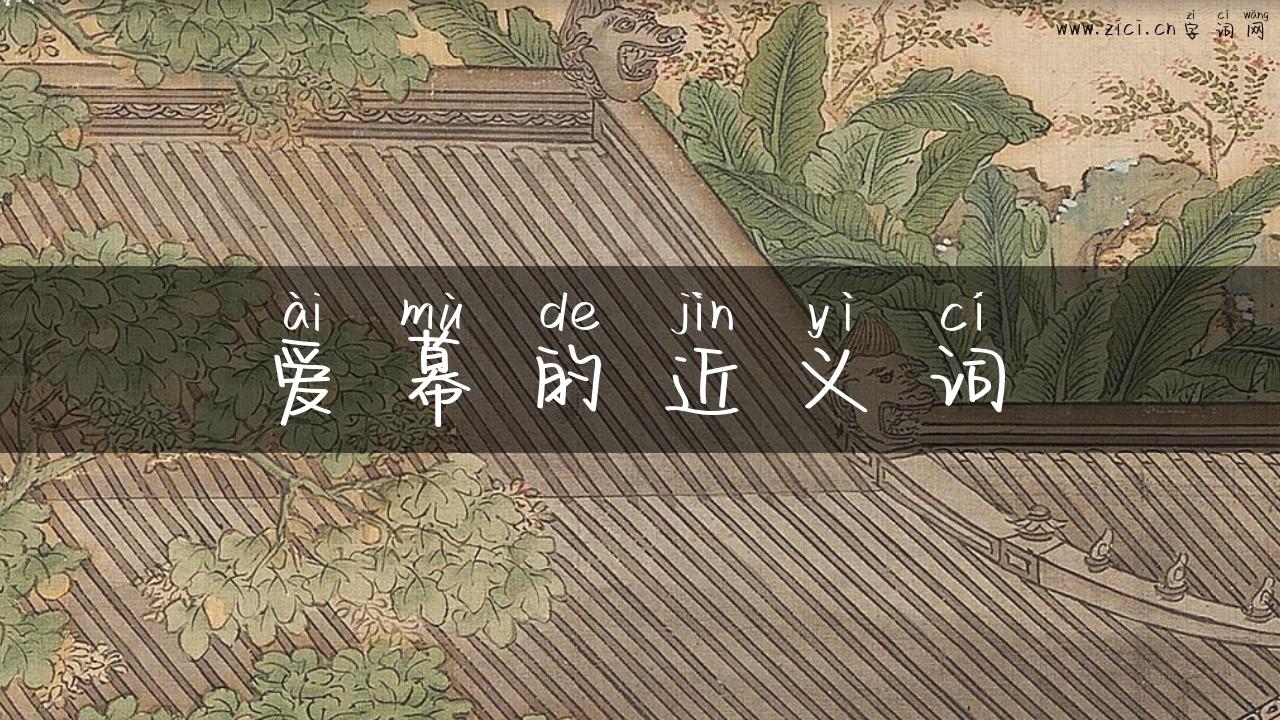 zì cí wǎng
www.zici.cn 字词网
ài mù de jìn yì cí
爱幕的近义词